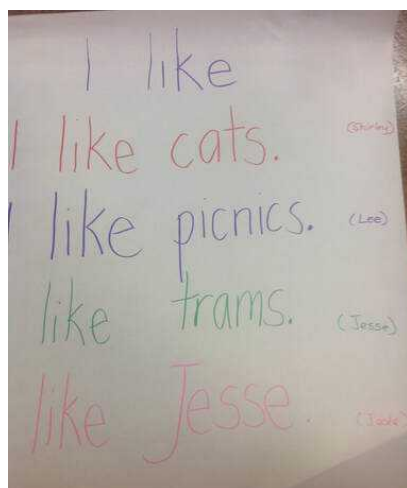 I like
I like cats. (Shirley)
I like picnics. (Lee)
like trams. (Jesse)
like Jesse.